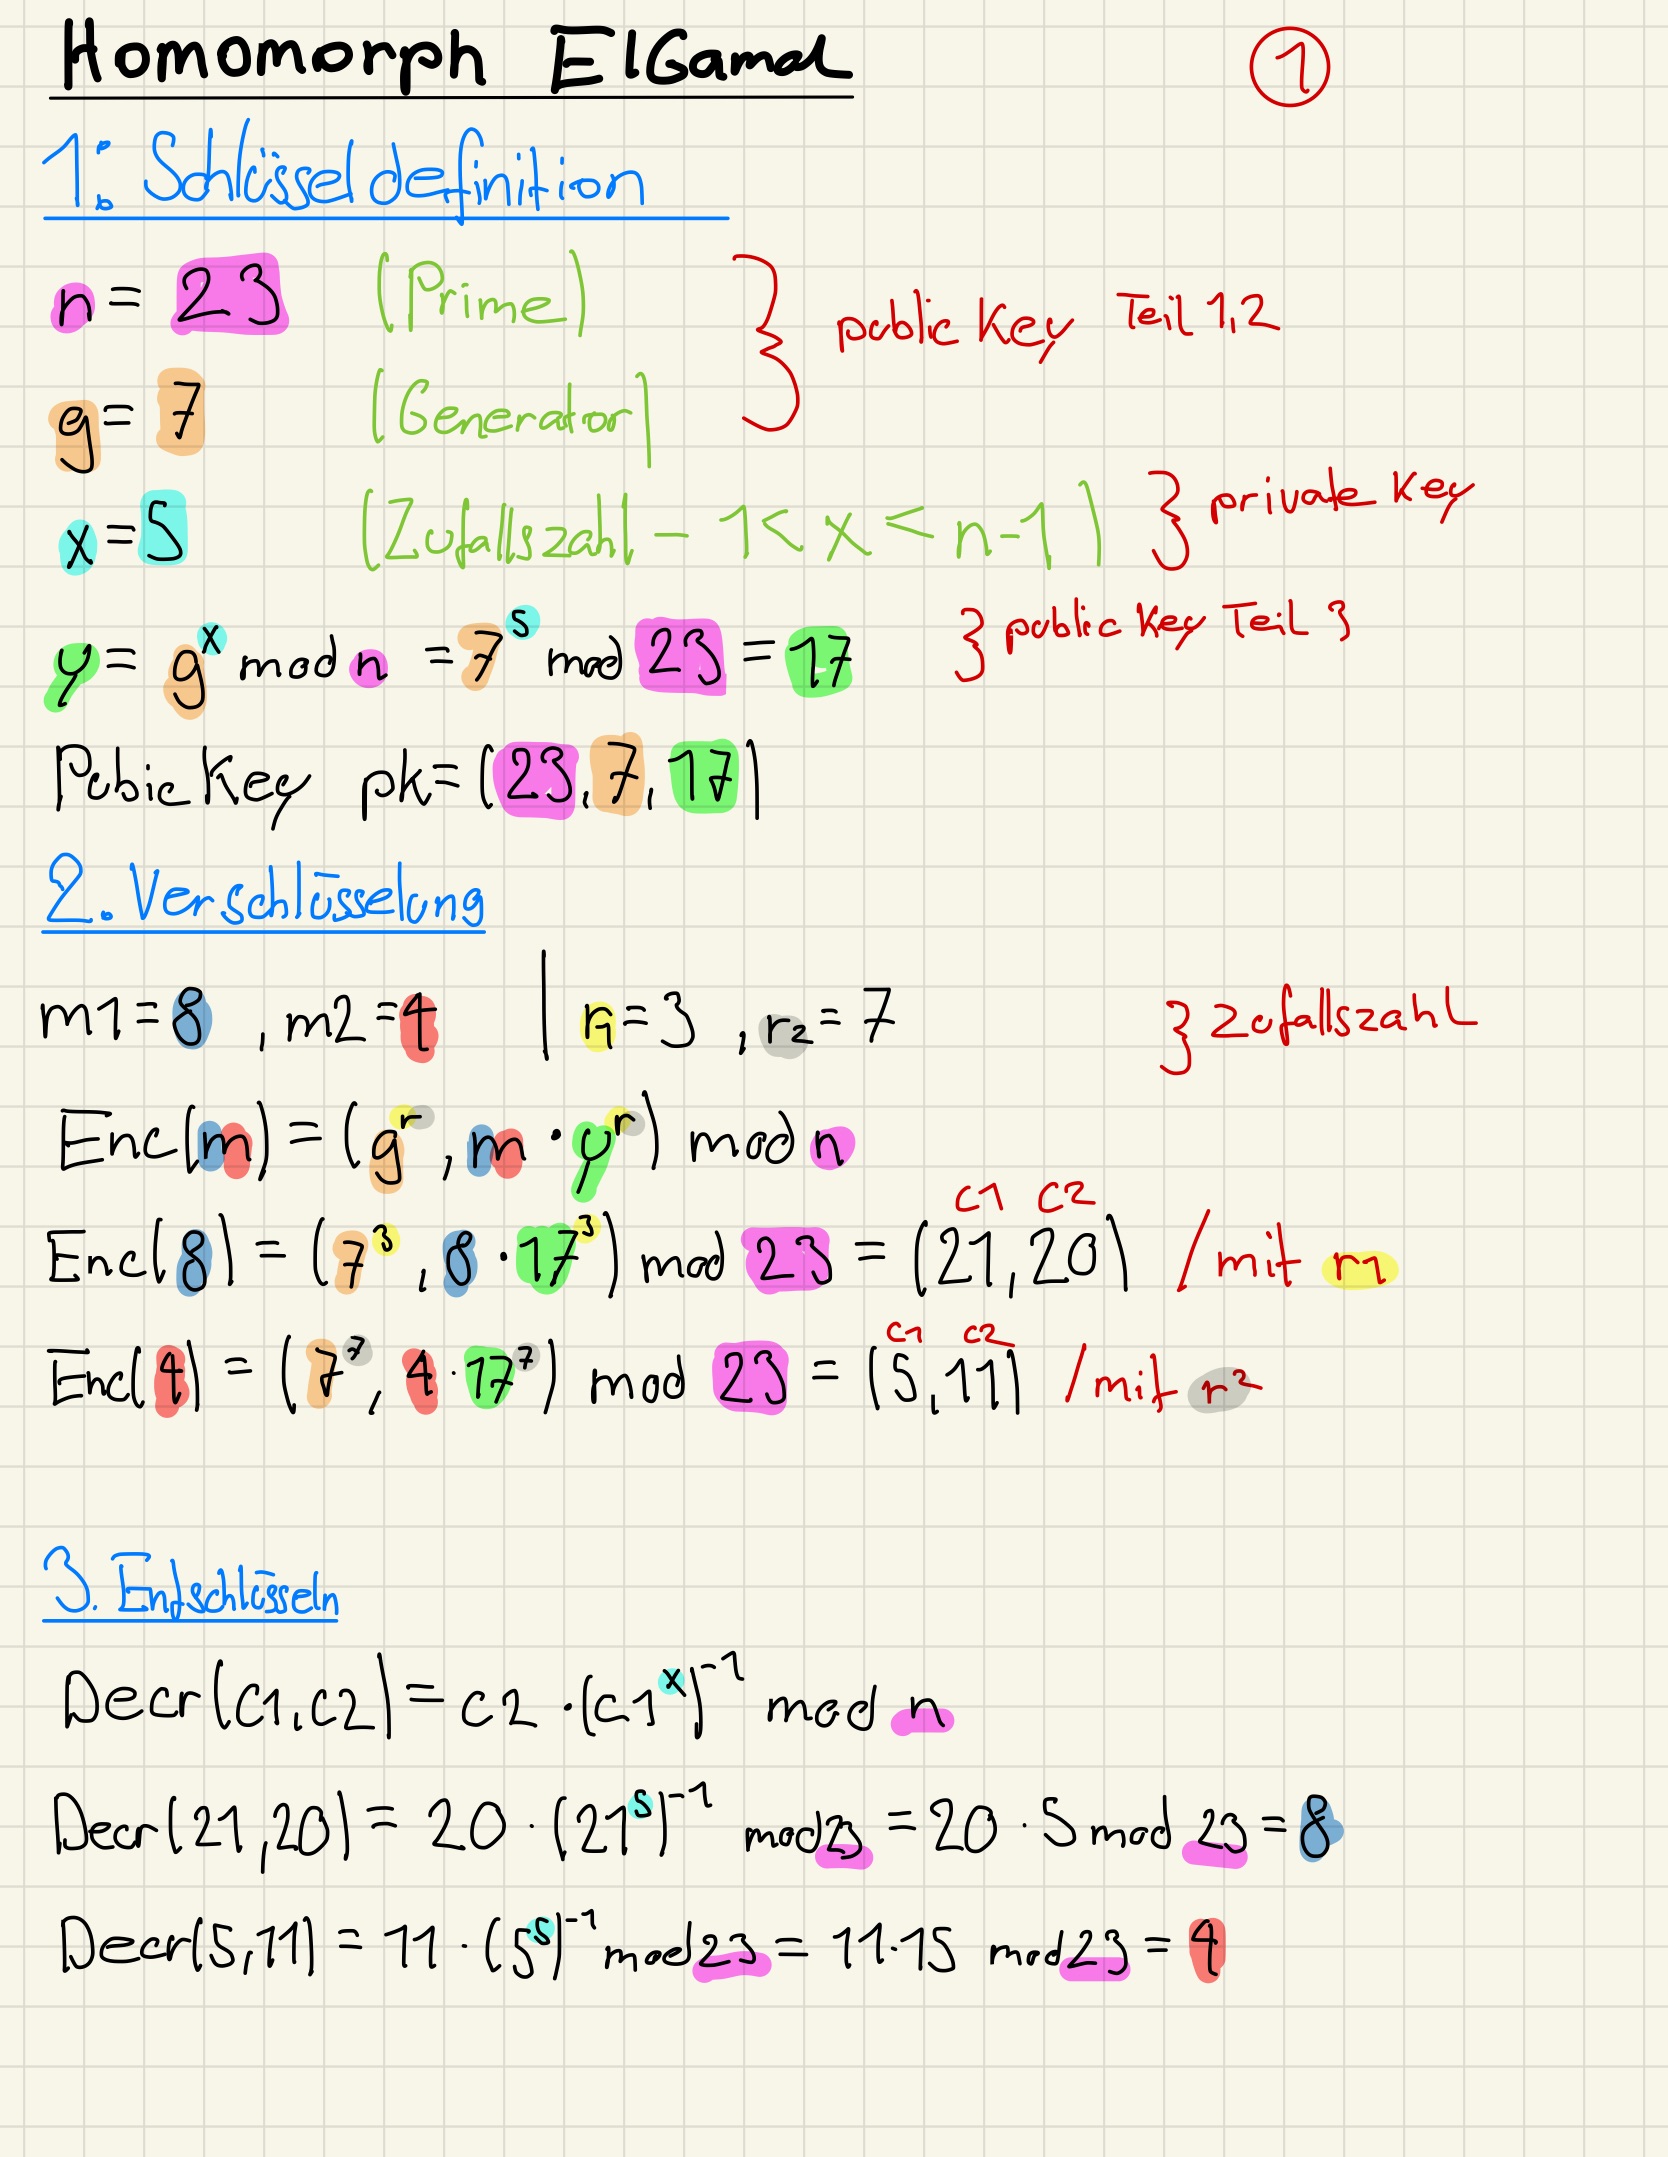 Homomorph ElGamal ①
1: Schlüsseldefinition
n = 23 (Prime) } public Key Teil 1,2
g = 7 (Generator)
x = 5 (Zufallszahl - 1 < x < n-1) } private Key
y = gˣ mod n = 7⁵ mod 23 = 17 } public Key Teil 3
Pubic Key pk = (23, 7, 17)
2. Verschlüsselung
m1 = 8 , m2 = 4 | r1 = 3 , r2 = 7 } Zufallszahl
Enc(m) = (gʳ , m · yʳ) mod n
c1 c2
Enc(8) = (7³ , 8 · 17³) mod 23 = (21, 20) / mit r1
c1 c2
Enc(4) = (7⁷ , 4 · 17⁷) mod 23 = (5, 11) / mit r2
3. Entschlüsseln
Decr(c1, c2) = c2 · (c1ˣ)⁻¹ mod n
Decr(21, 20) = 20 · (21⁵)⁻¹ mod 23 = 20 · 5 mod 23 = 8
Decr(5, 11) = 11 · (5⁵)⁻¹ mod 23 = 11 · 15 mod 23 = 4